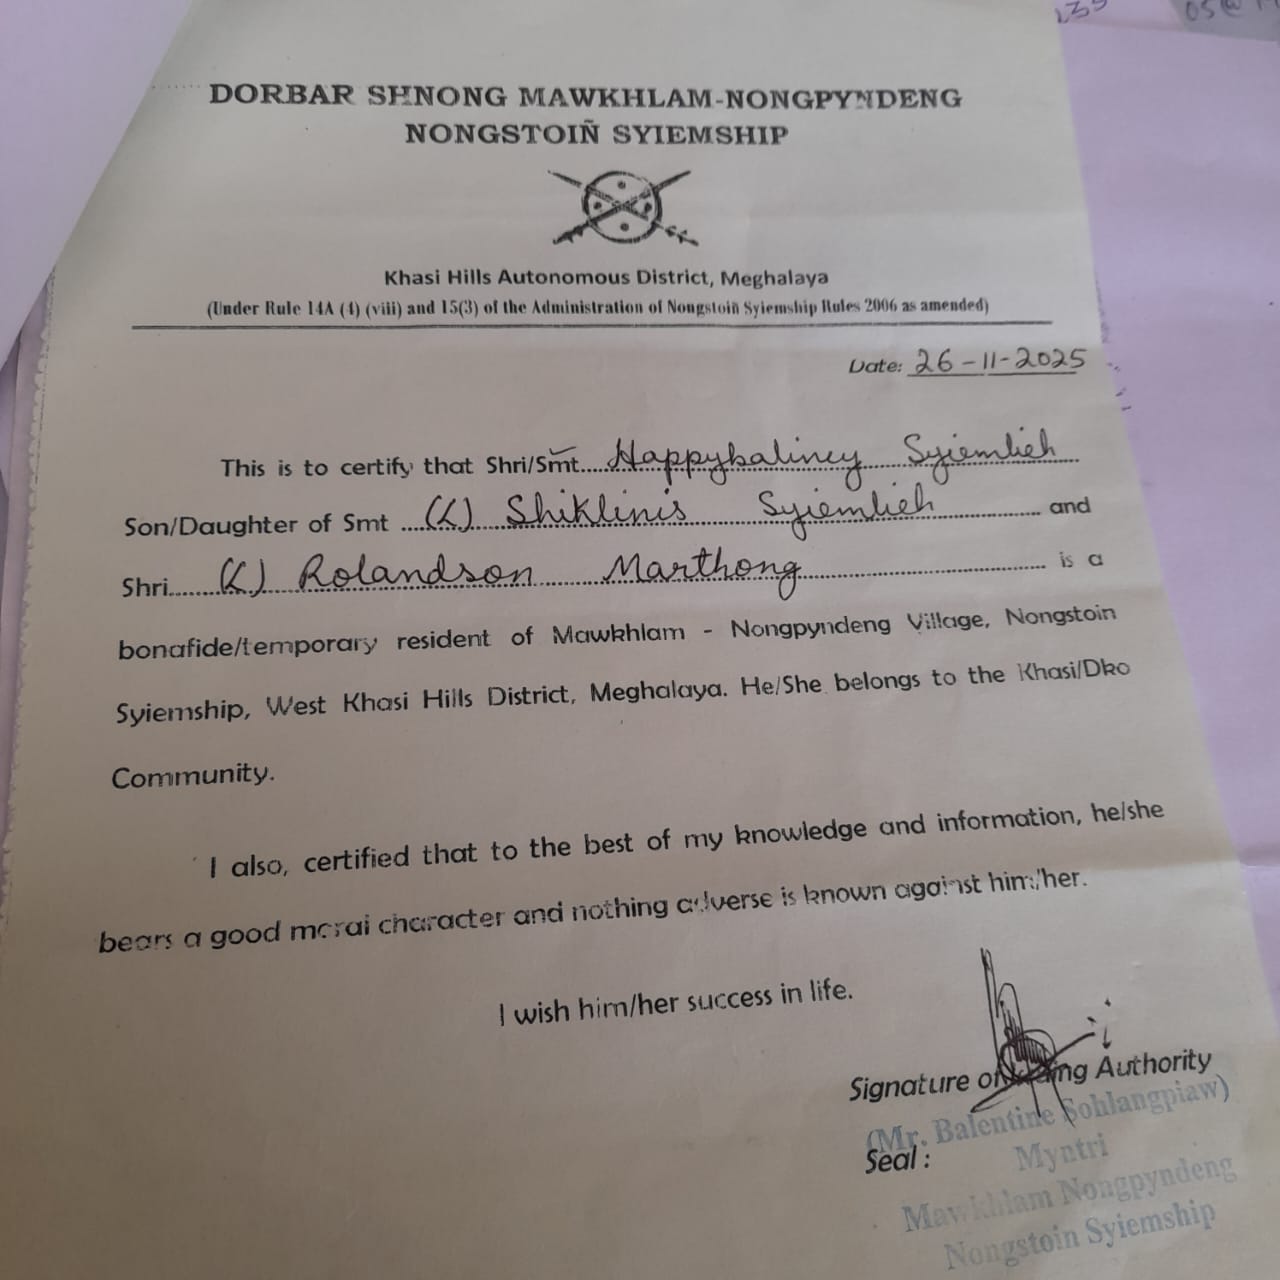 135
05@
DORBAR SHNONG MAWKHLAM-NONGPYNDENG
NONGSTOIÑ SYIEMSHIP
Khasi Hills Autonomous District, Meghalaya
(Under Rule 14A (4) (viii) and 15(3) of the Administration of Nongstoiñ Syiemship Rules 2006 as amended)
Date: 26-11-2025
This is to certify that Shri/Smt....Happybaliney Syiemlieh
Son/Daughter of Smt ...(L) Shiklinis Syiemlieh.... and
Shri....(L) Rolandson Marthong.... is a
bonafide/temporary resident of Mawkhlam - Nongpyndeng Village, Nongstoin
Syiemship, West Khasi Hills District, Meghalaya. He/She belongs to the Khasi/Dko
Community.
I also, certified that to the best of my knowledge and information, he/she
bears a good moral character and nothing adverse is known against him/her.
I wish him/her success in life.
Signature of Authority
(Mr. Balentine Sohlangpiaw)
Seal :
Myntri
Mawkhlam Nongpyndeng
Nongstoin Syiemship